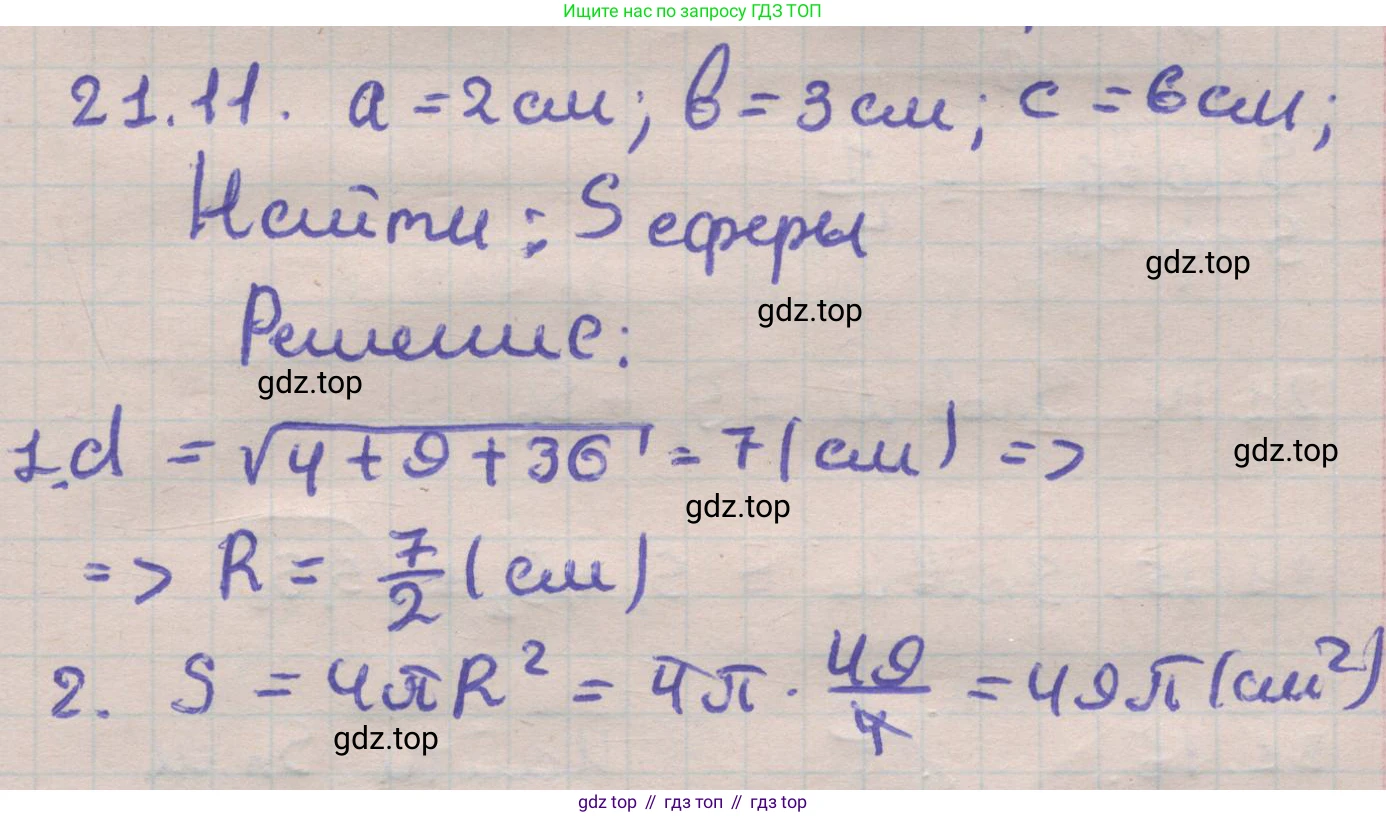 Ищите нас по запросу ГДЗ ТОП
21.11. a = 2 см; b = 3 см; c = 6 см;
Найти: S сферы
gdz.top
gdz.top
Решение:
gdz.top
1. d = √4 + 9 + 36 = 7 (см) =>
gdz.top
gdz.top
=> R = 7/2 (см)
2. S = 4πR² = 4π · 49/4 = 49π (см²)
gdz.top
gdz top // гдз топ // gdz top